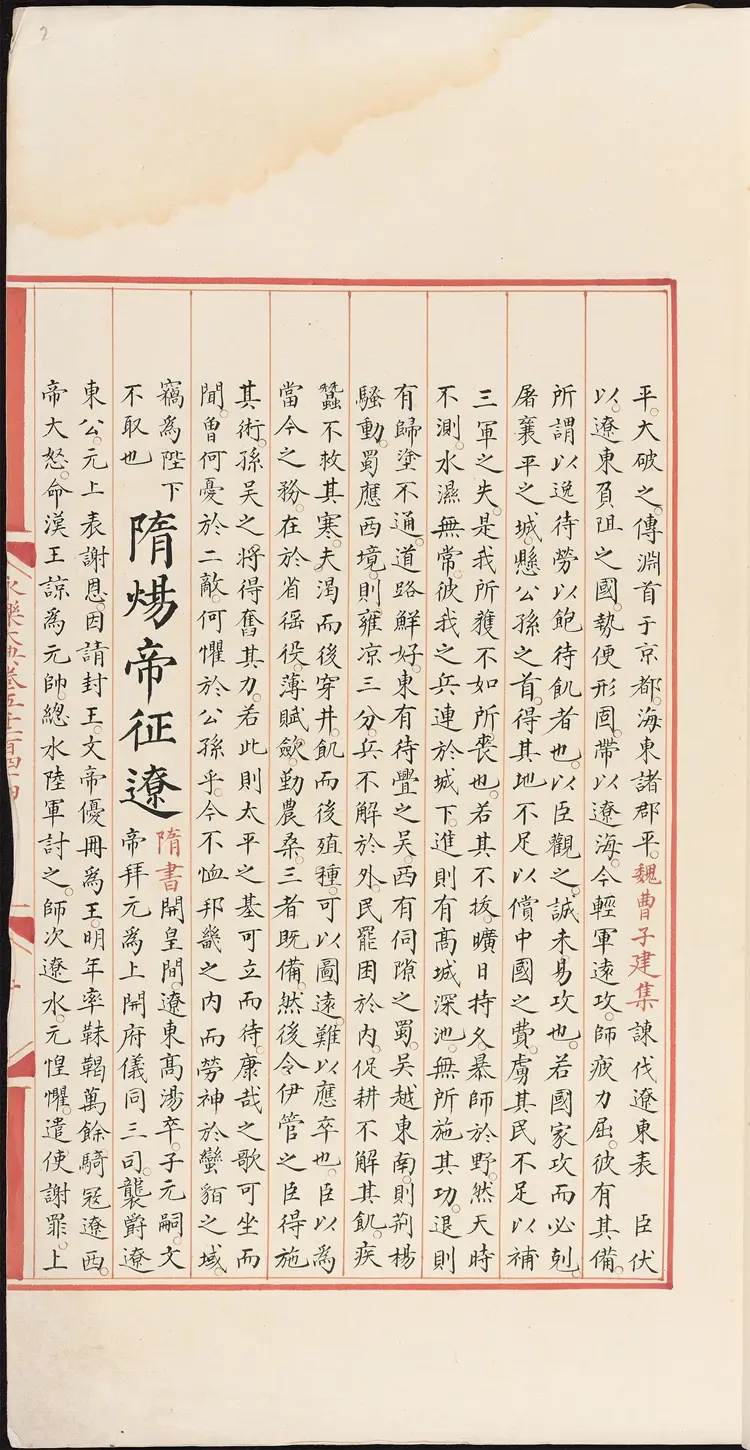 平。大破之。傳淵首于京都。海東諸郡平。魏曹子建集諫伐遼東表 臣伏
以。遼東負阻之國。勢便形固。帶以遼海。今輕軍遠攻。師疲力屈。彼有其備。
所謂以逸待勞以飽待飢者也。以臣觀之。誠未易攻也。若國家攻而必剋。
屠襄平之城。懸公孫之首。得其地不足以償中國之費。虜其民不足以補
三軍之失。是我所獲不如所喪也。若其不拔。曠日持久。暴師於野。然天時
不測。水濕無常。彼我之兵連於城下。進則有高城深池。無所施其功。退則
有歸塗不通。道路鮮好。東有待舋之吳。西有伺隙之蜀。吳越東南。則荊楊
騷動。蜀應西境。則雍凉三分。兵不解於外。民罷困於內。促耕不解其飢。疾
蠶不救其寒。夫渴而後穿井。飢而後殖種。可以圖遠。難以應卒也。臣以為
當今之務。在於省徭役。薄賦歛。勤農桑。三者既備。然後令伊管之臣得施
其術。孫吳之將得奮其力。若此則太平之基可立而待。康哉之歌可坐而
聞。曾何憂於二敵。何懼於公孫乎。今不恤邦畿之內而勞神於蠻貊之域。
竊為陛下
不取也
隋煬帝征遼
隋書開皇間。遼東高湯卒。子元嗣。文
帝拜元為上開府儀同三司。襲爵遼
東公。元上表謝恩。因請封王。文帝優冊為王。明年率靺鞨萬餘騎寇遼西。
帝大怒。命漢王諒為元帥。總水陸軍討之。師次遼水。元惶懼。遣使謝罪。上
永樂大典卷五千二百四十四
2